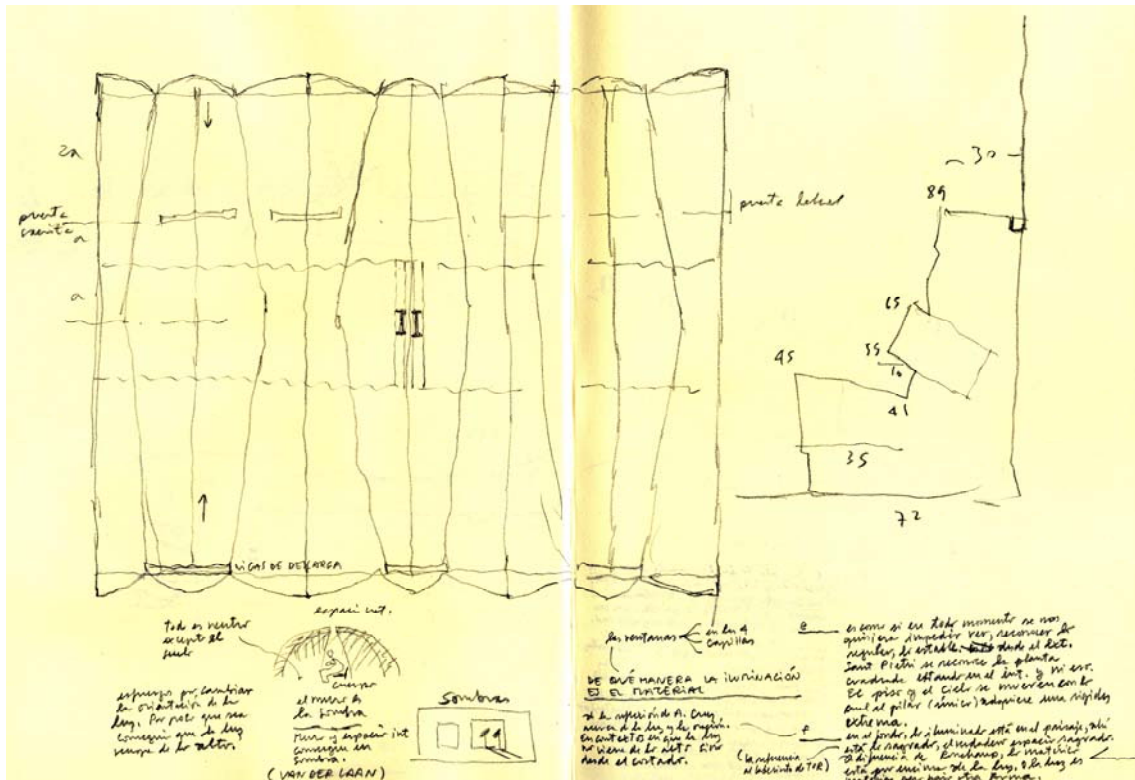 2a
puerta
a
a
VIGAS DE DESCARGA
puerta
30
89
65
55
10
45
41
35
72
todo es neutro
excepto el
suelo
espacio int.
cuerpo
esfuerzo por cambiar
la orientación de la
luz. Por poco que sea
conseguir que la luz
venga de lo alto.
el muro es
la sombra
muro y espacio int
consiguen su
sombra.
(VAN DER LAAN)
Sombras
las ventanas
en las 4
capillas
DE QUÉ MANERA LA ILUMINACIÓN
ES EL MATERIAL
de A. Cruz
acerca de la luz y la
en que la luz
no viene de lo alto sino
desde el costado.
(la referencia
al laberinto de TOR)
e
es como si en todo momento se nos
quisiera impedir ver, reconocer lo
regular, lo estable. desde el ext.
Sant Pietri se reconoce la planta
cuadrada estando en el int. y ni eso.
El piso y el cielo se mueven con lo
cual el pilar (único) adquiere una rigidez
extrema.
f
en el fondo, lo iluminado está en el paisaje, ahí
está lo sagrado, el verdadero espacio sagrado.
A diferencia de Ronchamp, lo matérico
está por encima de la luz, o la luz es